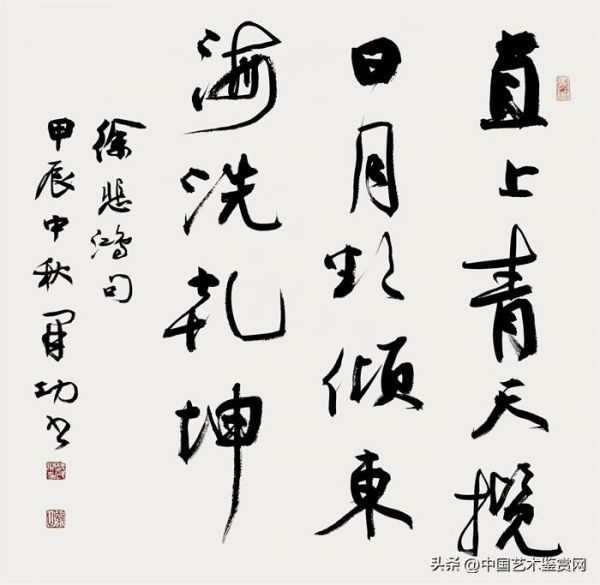 直上青天攬
日月欲傾東
海洗乾坤
徐悲鴻句
甲辰中秋 功书
头条 @中国艺术鉴赏网